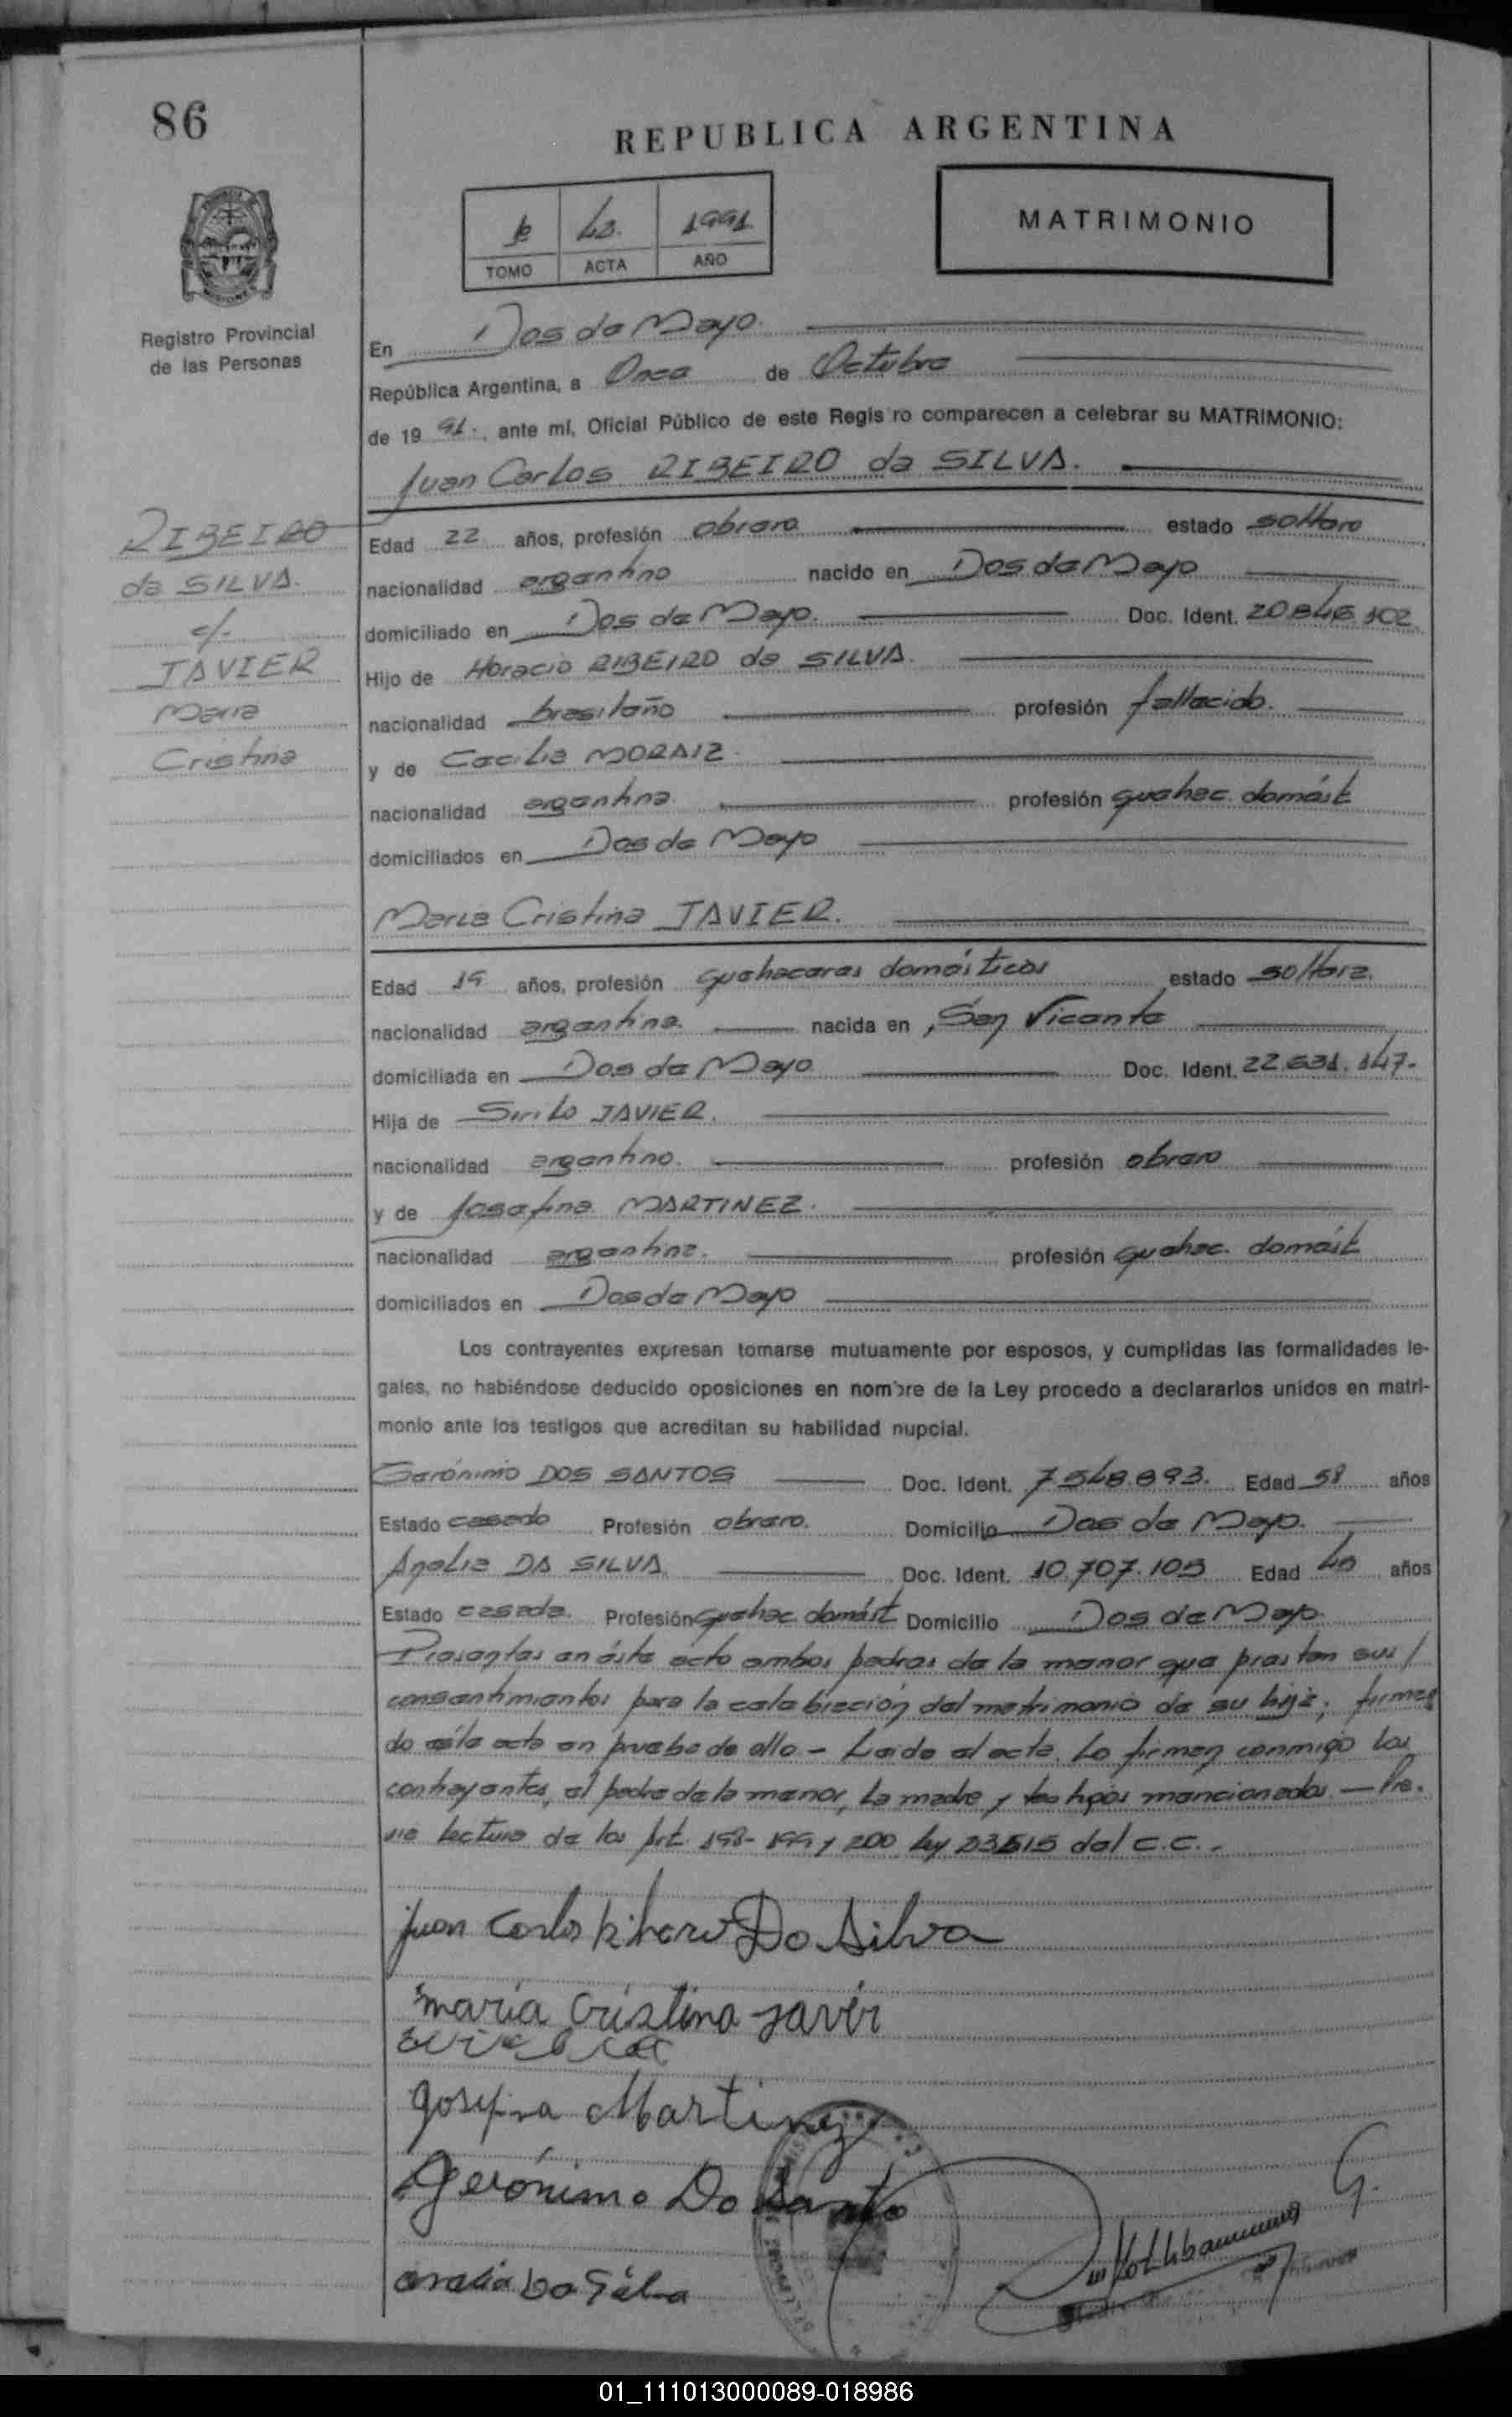 86
REPUBLICA ARGENTINA
1º 43. 1991.
TOMO ACTA AÑO
MATRIMONIO
Registro Provincial
de las Personas
En Dos de Mayo.
República Argentina, a Once de Octubre
de 19 91., ante mí, Oficial Público de este Regis ro comparecen a celebrar su MATRIMONIO:
Juan Carlos RIBEIRO da SILVA.
RIBEIRO
da SILVA.
c/.
JAVIER
Maria
Cristina
Edad 22 años, profesión obrero estado soltero
nacionalidad argentino nacido en Dos de Mayo
domiciliado en Dos de Mayo. Doc. Ident. 20.846.102
Hijo de Horacio RIBEIRO da SILVA.
nacionalidad brasileño profesión fallecido.
y de Cecilia MORAIZ.
nacionalidad argentina profesión quehac. domést
domiciliados en Dos de Mayo
Maria Cristina JAVIER.
Edad 19 años, profesión quehaceres domésticos estado soltera.
nacionalidad argentina. nacida en San Vicente
domiciliada en Dos de Mayo Doc. Ident. 22.631.147.
Hija de Sirilo JAVIER.
nacionalidad argentino. profesión obrero
y de Josefina MARTINEZ.
nacionalidad argentina. profesión quehac. domést
domiciliados en Dos de Mayo
Los contrayentes expresan tomarse mutuamente por esposos, y cumplidas las formalidades le-
gales, no habiéndose deducido oposiciones en nombre de la Ley procedo a declararlos unidos en matri-
monio ante los testigos que acreditan su habilidad nupcial.
Gerónimo DOS SANTOS Doc. Ident. 7.548.893. Edad 58 años
Estado casado Profesión obrero. Domicilio Dos de Mayo.
Analia DA SILVA Doc. Ident. 10.707.105 Edad 40 años
Estado casada. Profesión quehac. domést Domicilio Dos de Mayo.
Presentes en éste acto ambos padres de la menor que prestan sus /
consentimientos para la celebración del matrimonio de su hija, firman
do ésta acta en prueba de ello.- Leída el acta. Lo firman conmigo los
contrayentes, el padre de la menor, la madre y testigos mencionados.— Pre.
via lectura de los Art. 198-199 y 200 ley 23515 del C.C.-
juan Carlos Ribero Do Silva
maria Cristina Javier
Gosefina Martinez
Gerónimo Do Santo
analia Da Silva
01_111013000089-018986